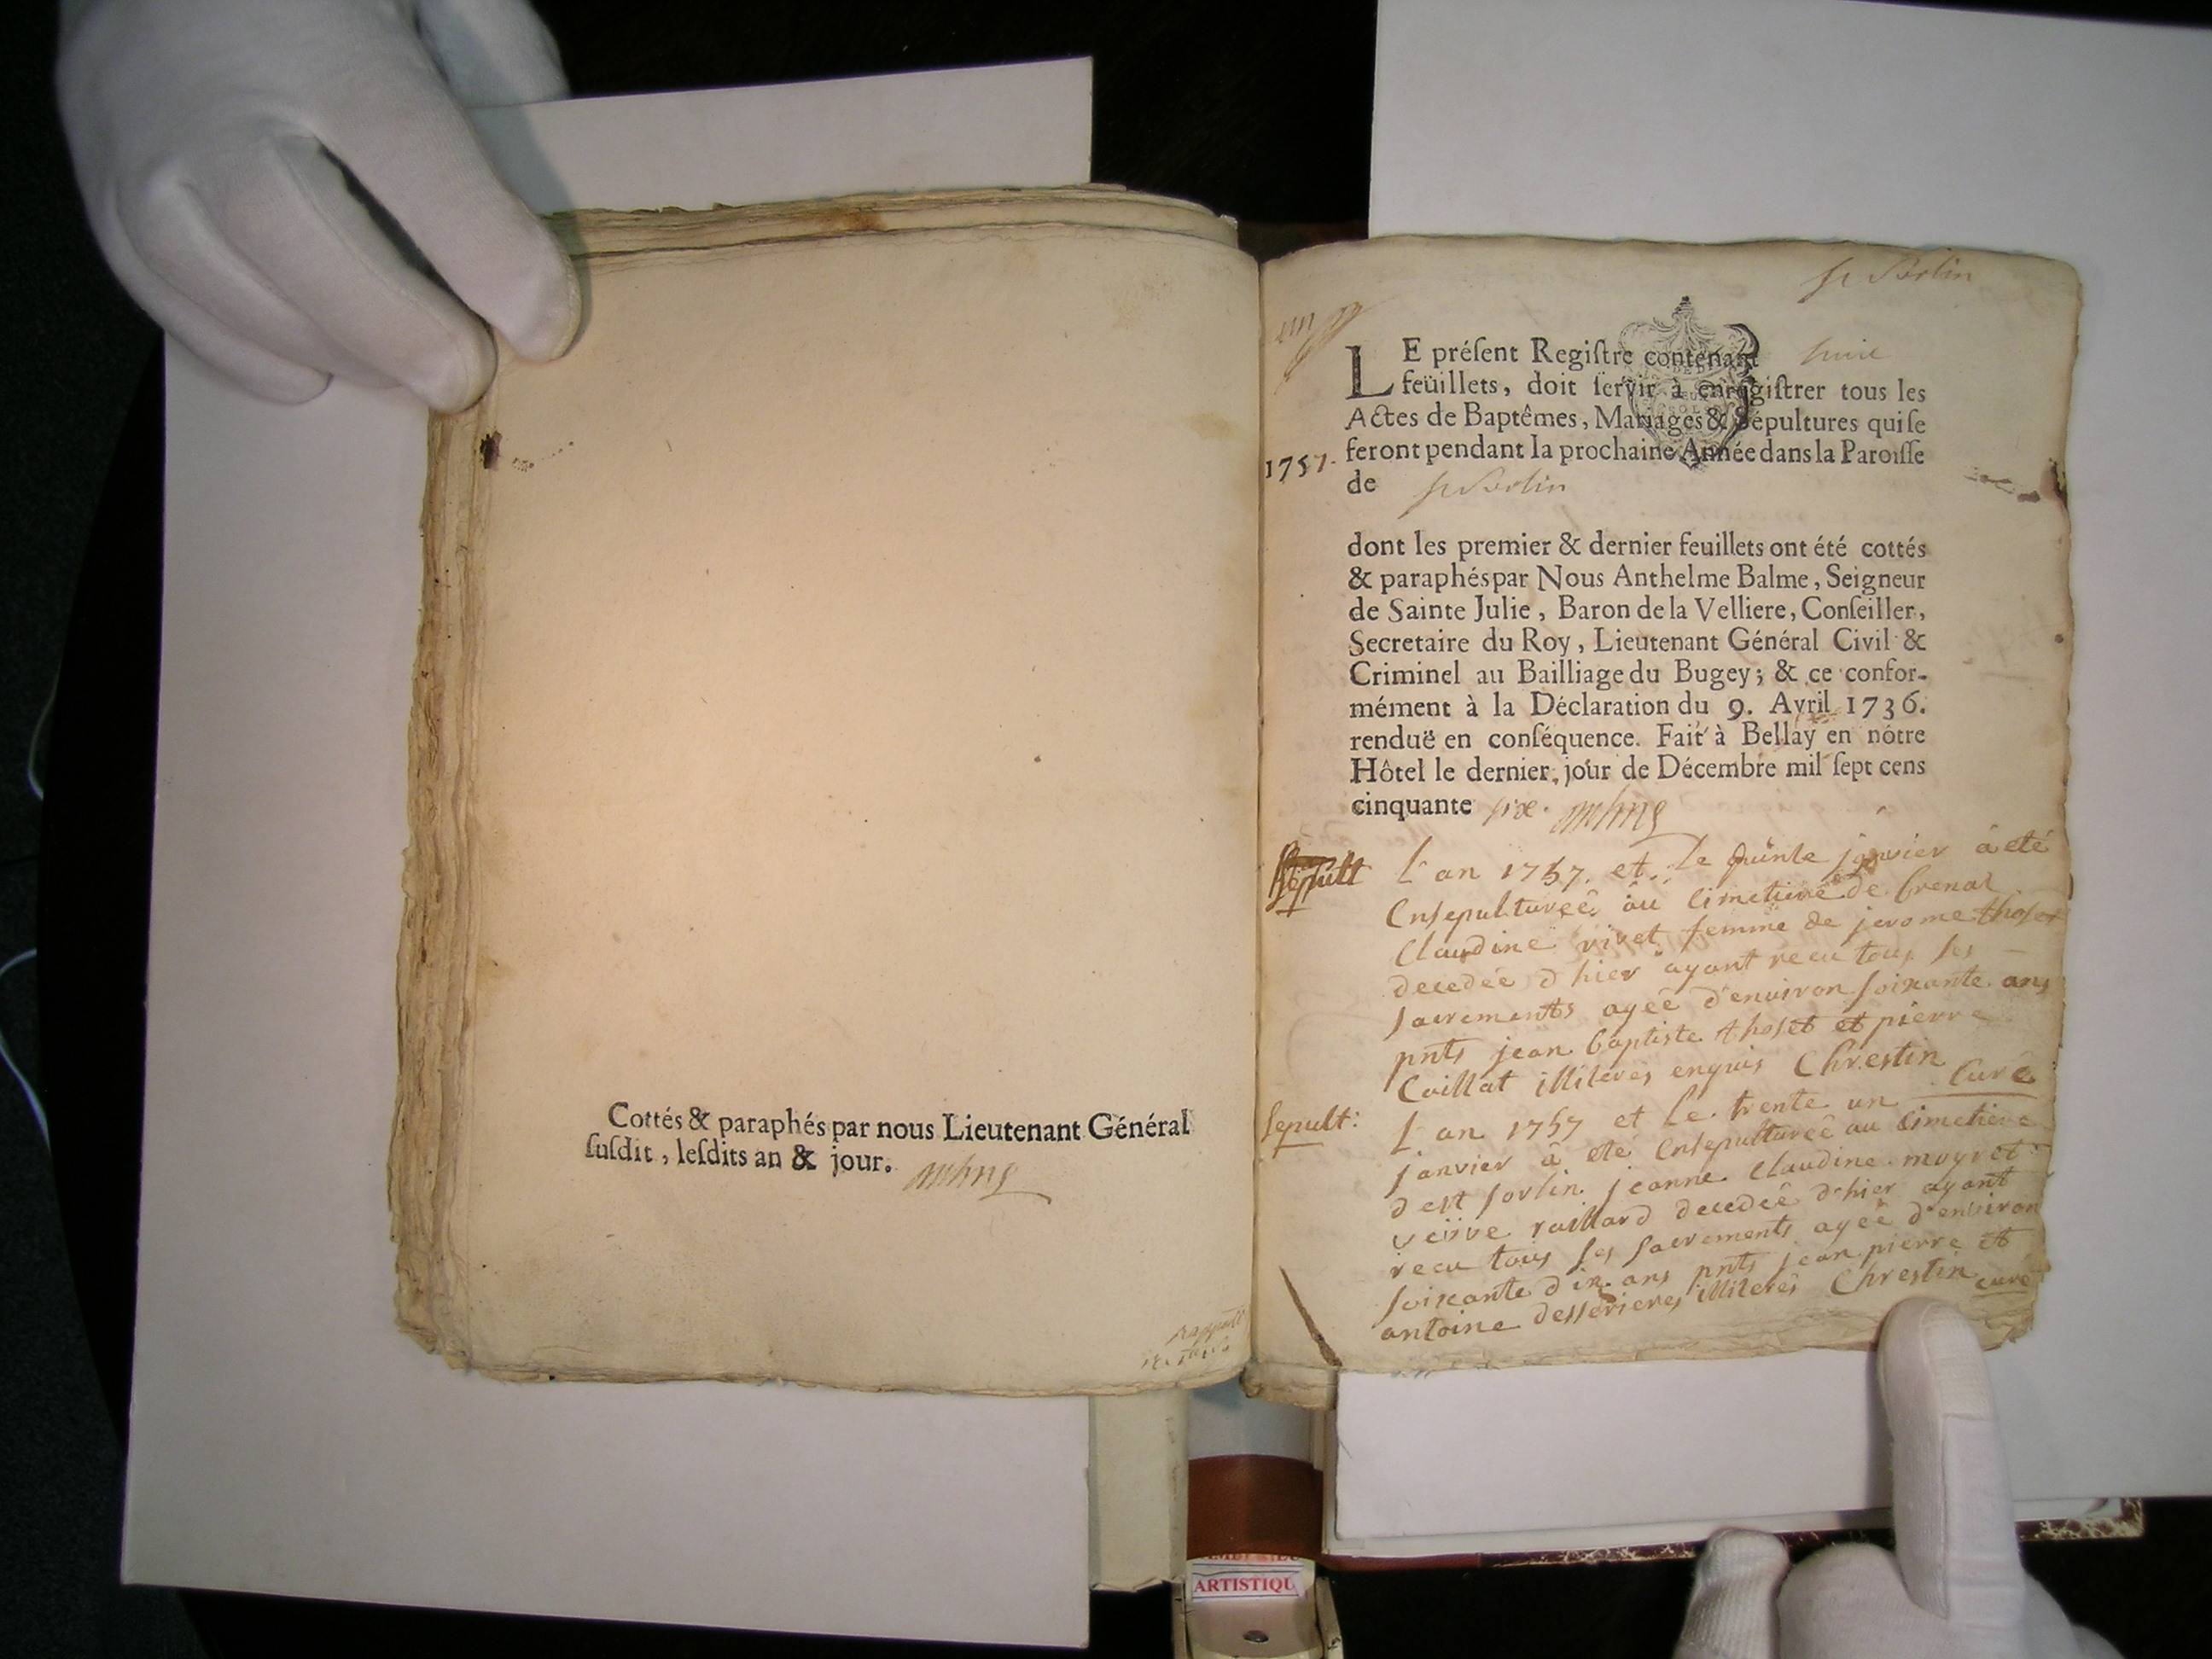 Cottés & paraphés par nous Lieutenant Général
ſuſdit, leſdits an & jour.
st Sorlin
un
LE préſent Regiſtre contenant huit
feüillets, doit ſervir à enregiſtrer tous les
Actes de Baptêmes, Mariages & Sépultures qui ſe
feront pendant la prochaine Année dans la Paroiſſe
1757.
de st Sorlin
dont les premier & dernier feuillets ont été cottés
& paraphés par Nous Anthelme Balme, Seigneur
de Sainte Julie, Baron de la Velliere, Conſeiller,
Secretaire du Roy, Lieutenant Général Civil &
Criminel au Bailliage du Bugey; & ce confor-
mément à la Déclaration du 9. Avril 1736.
renduë en conſéquence. Fait à Bellay en nôtre
Hôtel le dernier jour de Décembre mil ſept cens
cinquante six.
Sepult
L'an 1757. et le quinze janvier à eté
Ensepulturée au cimetiere de
Claudine vivet femme de jerome thoset
decedée d hier ayant recu tous ses
sacrements agée d'environ soixante ans
pnts jean baptiste thoset et pierre
Caillat illiterés enquis Chrestin
Curé
Sepult:
L an 1757 et le trente un
janvier à eté Ensepulturée au cimetiere
d est sorlin jeanne Claudine moyret
veüve raillard decedée d'hier ayant
recu tous ses sacrements agée d'environ
soixante dix ans pnts jean pierre et
antoine desserieres illiterés Chrestin curé